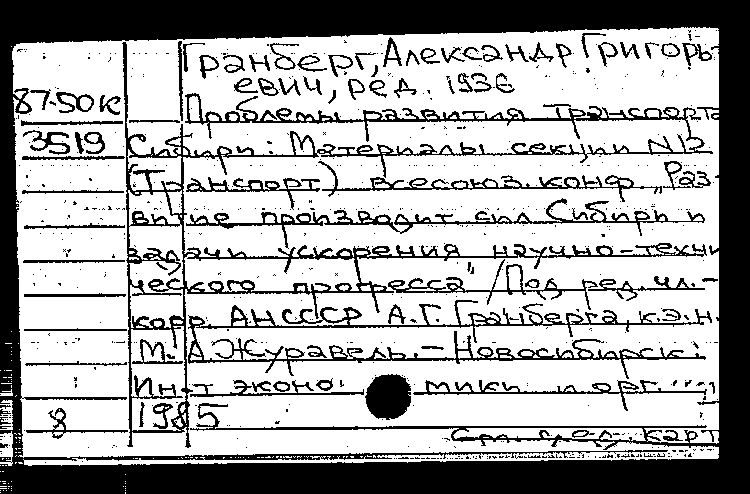 Гранберг, Александр Григорь-
евич, ред. 1936
87-50К Проблемы развития транспорта
3519 Сибири: Материалы секции N12
(Транспорт) всесоюз. конф. „Раз-
витие производит. сил Сибири и
задачи ускорения научно-техни
ческого прогресса" / Под ред. чл.-
корр. АНСССР А.Г. Гранберга, к.э.н.
М.А. Журавель. – Новосибирск:
Ин-т эконо мики и орг.
8 1985
См. пред. карт